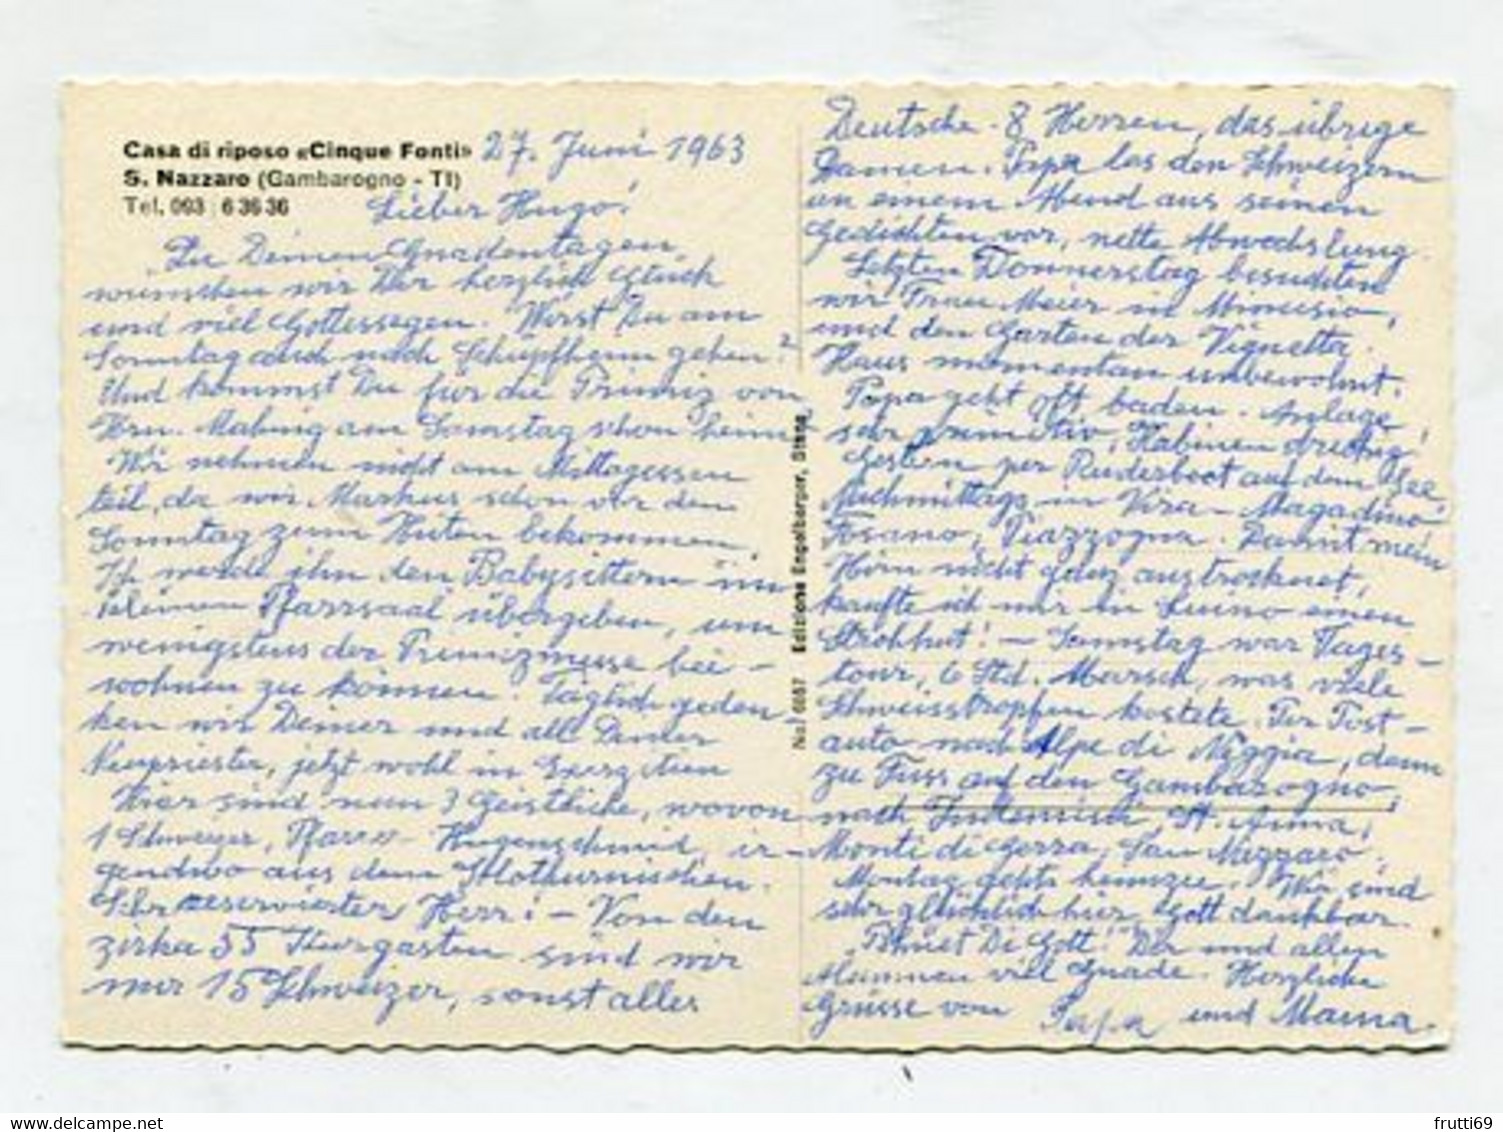 Casa di riposo «Cinque Fonti»
S. Nazzaro (Gambarogno - TI)
Tel. 093 6 36 36
27. Juni 1963
Lieber Hugo!
Zu Deinen Gnadentagen
wünschen wir Dir herzlich Glück
und viel Gottessegen. Wirst Du am
Sonntag auch nach Schüpfheim gehen?
Und kommst Du für die Primiz von
Hrn. Mahnig am Samstag schon heim?
Wir nehmen nicht am Mittagessen
teil, da wir Markus schon vor dem
Sonntag zum Hüten bekommen.
Ich werde ihn den Babysittern im
kleinen Pfarrsaal übergeben, um
wenigstens der Primizmesse bei-
wohnen zu können. Täglich geden-
ken wir Deiner und all Deiner
Neupriester, jetzt wohl in Exerzitien
Hier sind nun 3 Geistliche, wovon
1 Schweizer, Pfarrer Hugenschmid, ir-
gendwo aus dem Solothurnischen.
Sehr reservierter Herr! - Von den
zirka 55 Kurgästen sind wir
nur 15 Schweizer, sonst alles
No. 6687 Edizione Engelberger, Stans
Deutsche. 8 Herren, das übrige
Damen. Papa las den Schweizern
an einem Abend aus seinen
Gedichten vor, nette Abwechslung.
Letzten Donnerstag besuchten
wir Frau Meier in Minusio,
und den Garten der Vignetta.
Haus momentan unbewohnt.
Papa geht oft baden. Anlage
sehr primitiv, Kabinen dreckig!
Gestern per Ruderboot auf dem See
Nachmittags in Vira - Magadino
Fosano, Piazzogna. Damit mein
Hirn nicht ganz austrocknet,
kaufte ich mir in Luino einen
Strohhut! - Samstag war Tages-
tour, 6 Std. Marsch, was viele
Schweisstropfen kostete. Per Post-
auto nach Alpe di Neggia, dann
zu Fuss auf den Gambarogno,
nach Indemini, St. Anna,
Monti di Gerra, San Nazzaro.
Montag gehts heimzu. Wir sind
sehr glücklich hier, Gott dankbar.
"Bhüet Di Gott!" Dir und allen
viel Gnade. Herzliche
Grüsse von Papa und Mama.
www.delcampe.net
frutti69